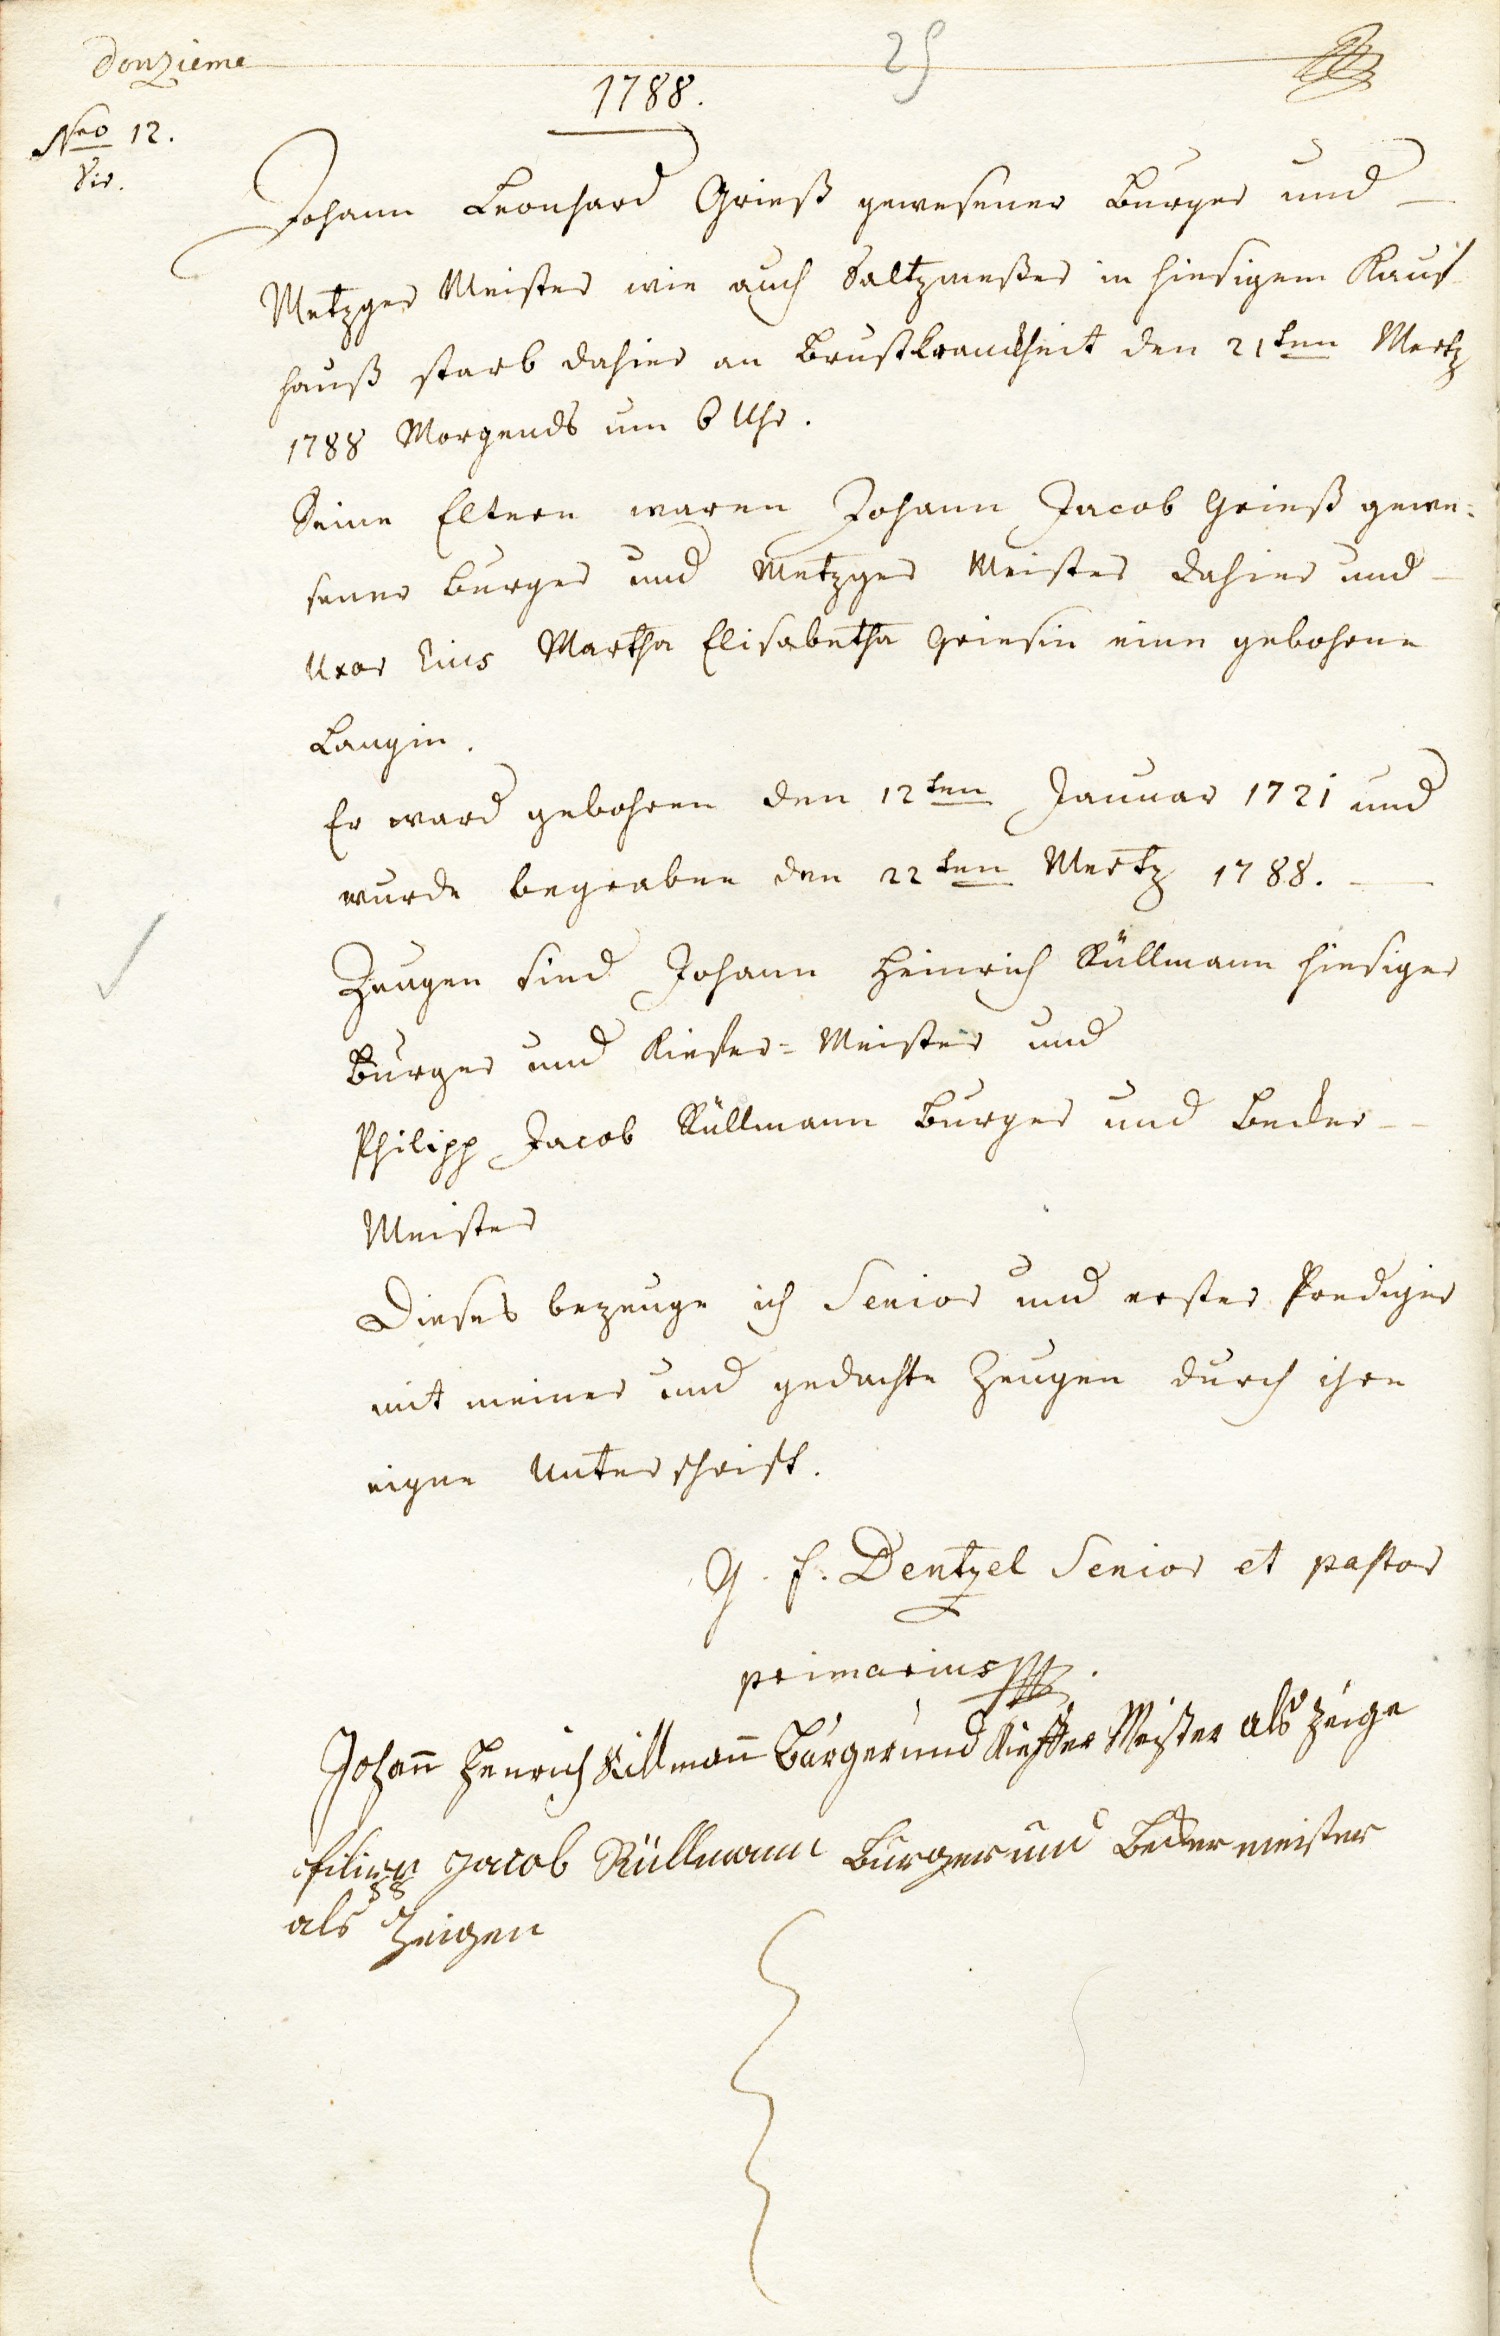 Douzieme
25
1788.
Nro 12.
Vir.
Johann Leonhard Grieß gewesener Burger und
Metzger Meister wie auch Saltzmeßer in hiesigem Kauf
hauß starb dahier an Brustkranckheit den 21ten Mertz
1788 Morgends um 6 Uhr.
Seine Eltern waren Johann Jacob Grieß gewe-
sener Burger und Metzger Meister dahier und
Uxor Eius Martha Elisabetha Griesin eine gebohrne
Langin.
Er ward gebohren den 12ten Januar 1721 und
wurde begraben den 22ten Mertz 1788.
Zeugen sind Johann Heinrich Küllmann hiesiger
Burger und Kiefer-Meister und
Philipp Jacob Küllmann Burger und Becker
Meister
Dieses bezeuge ich Senior und erster Prediger
mit meiner und gedachte Zeugen durch ihre
eigne Unterschrift.
G. F. Dentzel Senior et pastor
primarius
Johann Henrich Killmann Burger und Kieffer Meister als Zeige
filipp Jacob Küllmann Burger und Becker meister
als Zeigen